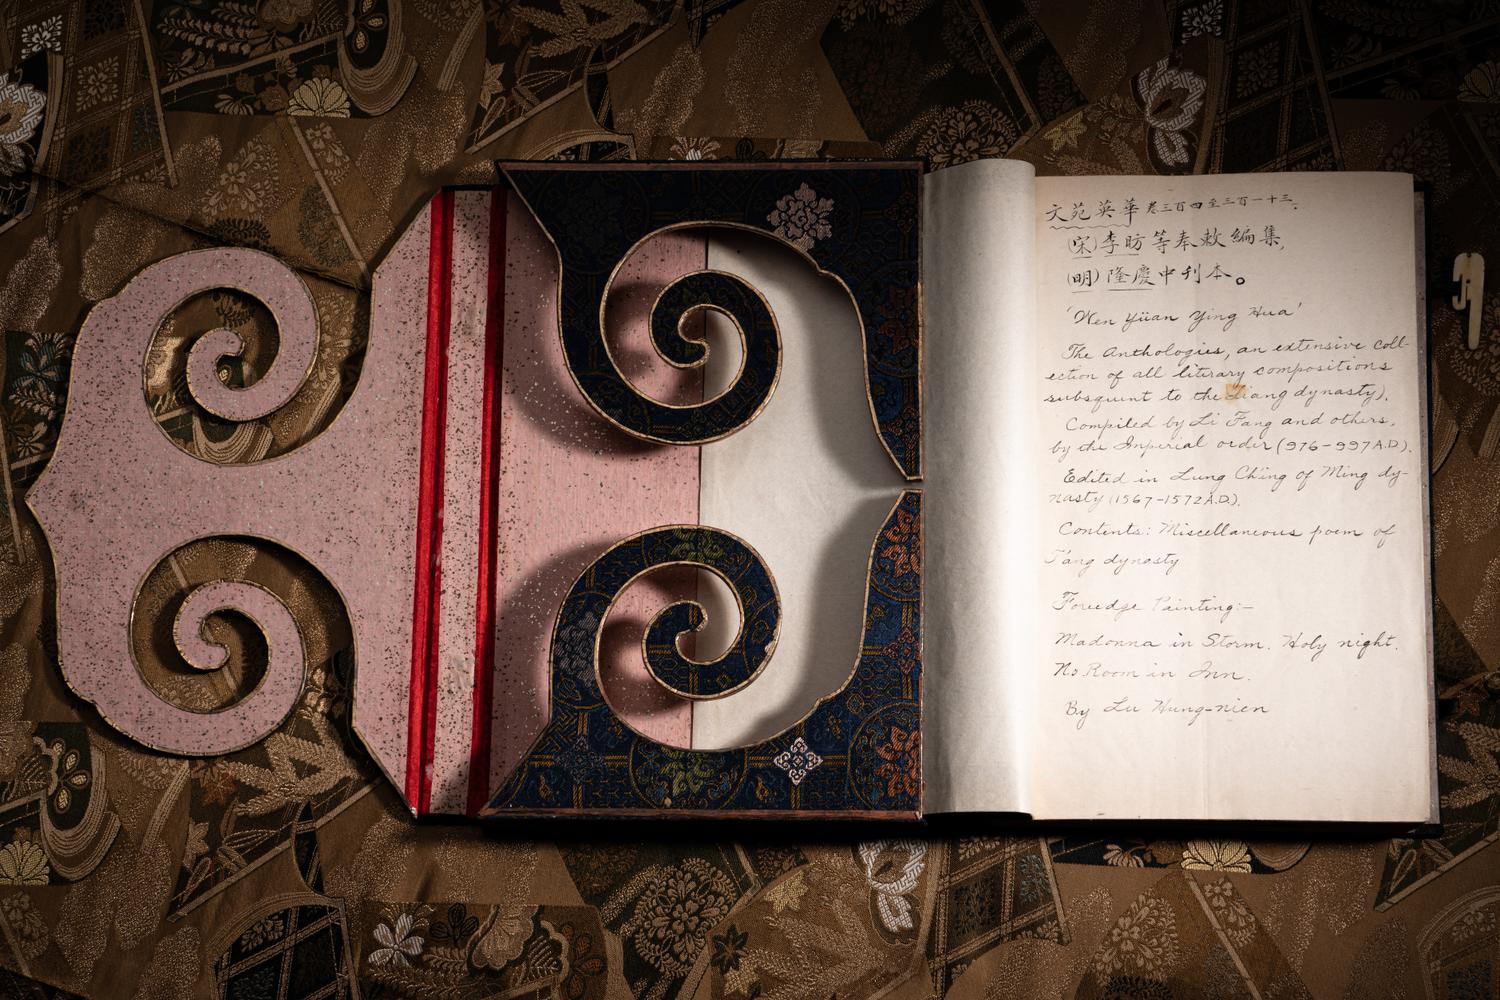 文苑英華 卷三百四至三百一十三.
(宋)李昉等奉敕編集,
(明)隆慶中刊本。
'Wen Yüan Ying Hua'
The Anthologies, an extensive coll-
ection of all literary compositions
subsquent to the Liang dynasty).
Compiled by Li Fang and others,
by the Inperial order (976-997 A.D).
Edited in Lung Ch'ing of Ming dy-
nasty (1567-1572 A.D.).
Contents: Miscellaneous poem of
T'ang dynasty
Foredge Painting:-
Madonna in Storm. Holy night.
No Room in Inn.
By Lu Hung-nien